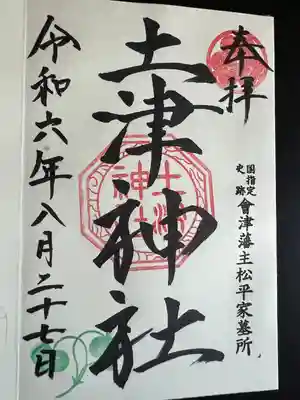 奉拝
国指定
史跡
會津藩主松平家墓所
土津神社
令和六年八月二十七日